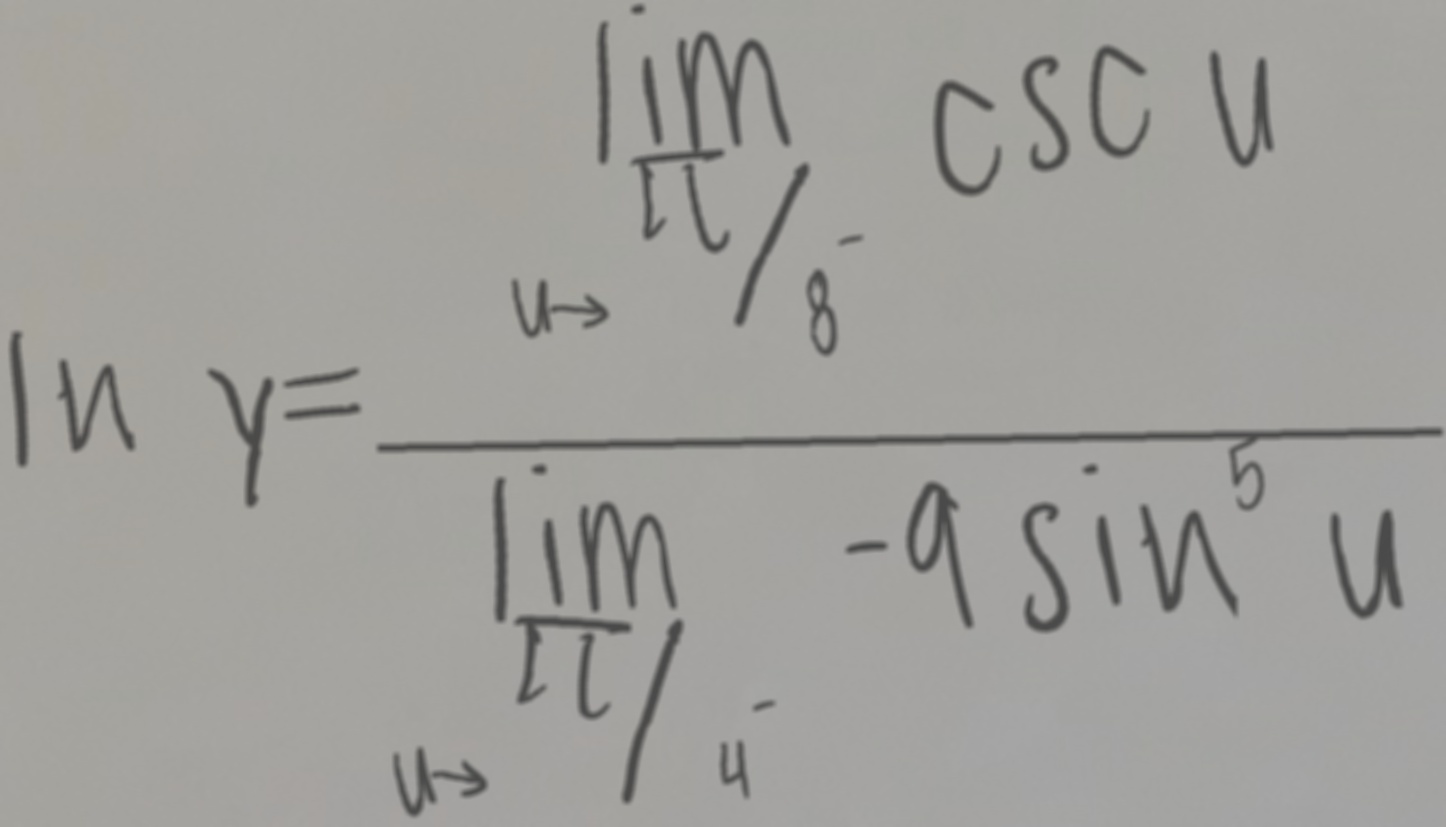 ln y = \frac{\lim_{u \to \pi/8^-} \csc u}{\lim_{u \to \pi/4^-} -9 \sin^5 u}